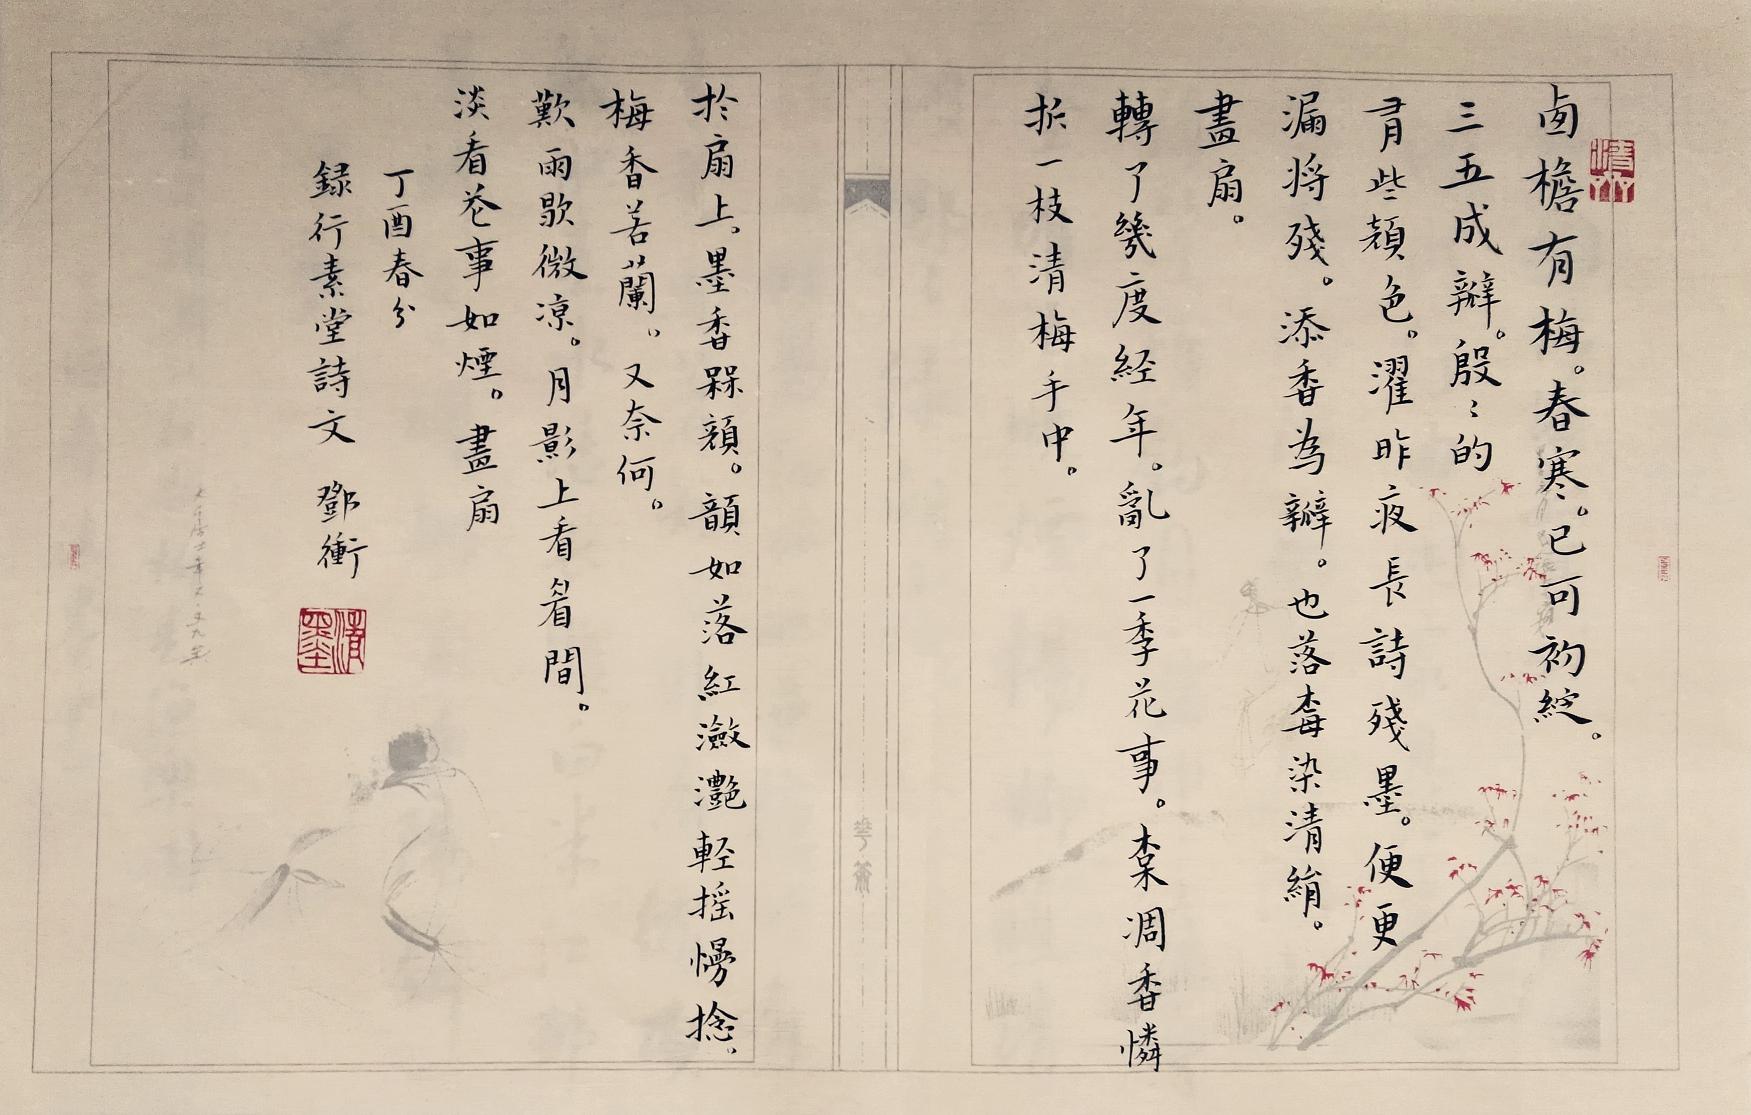 卤檐有梅。春寒。已可初綻。
三五成瓣。殷〻的
肙些頹色。濯昨夜長詩殘墨。便更
漏将殘。添香為瓣。也落毐染清絹。
畫扇。
轉了幾度経年。亂了一季花事。枽凋香憐
折一枝清梅手中。
扵扇上。墨香槑顔。韻如落紅瀲灔輕摇慢捻。
梅香若蘭。又奈何。
歎雨歇微凉。月影上看眉間。
淡看花事如煙。畫扇
丁酉春分
録行素堂詩文 鄧衝
清墨